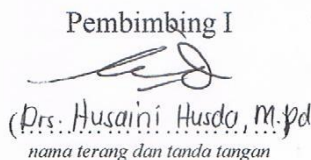 Pembimbing I
(Drs. Husaini Husda, M.Pd
nama terang dan tanda tangan